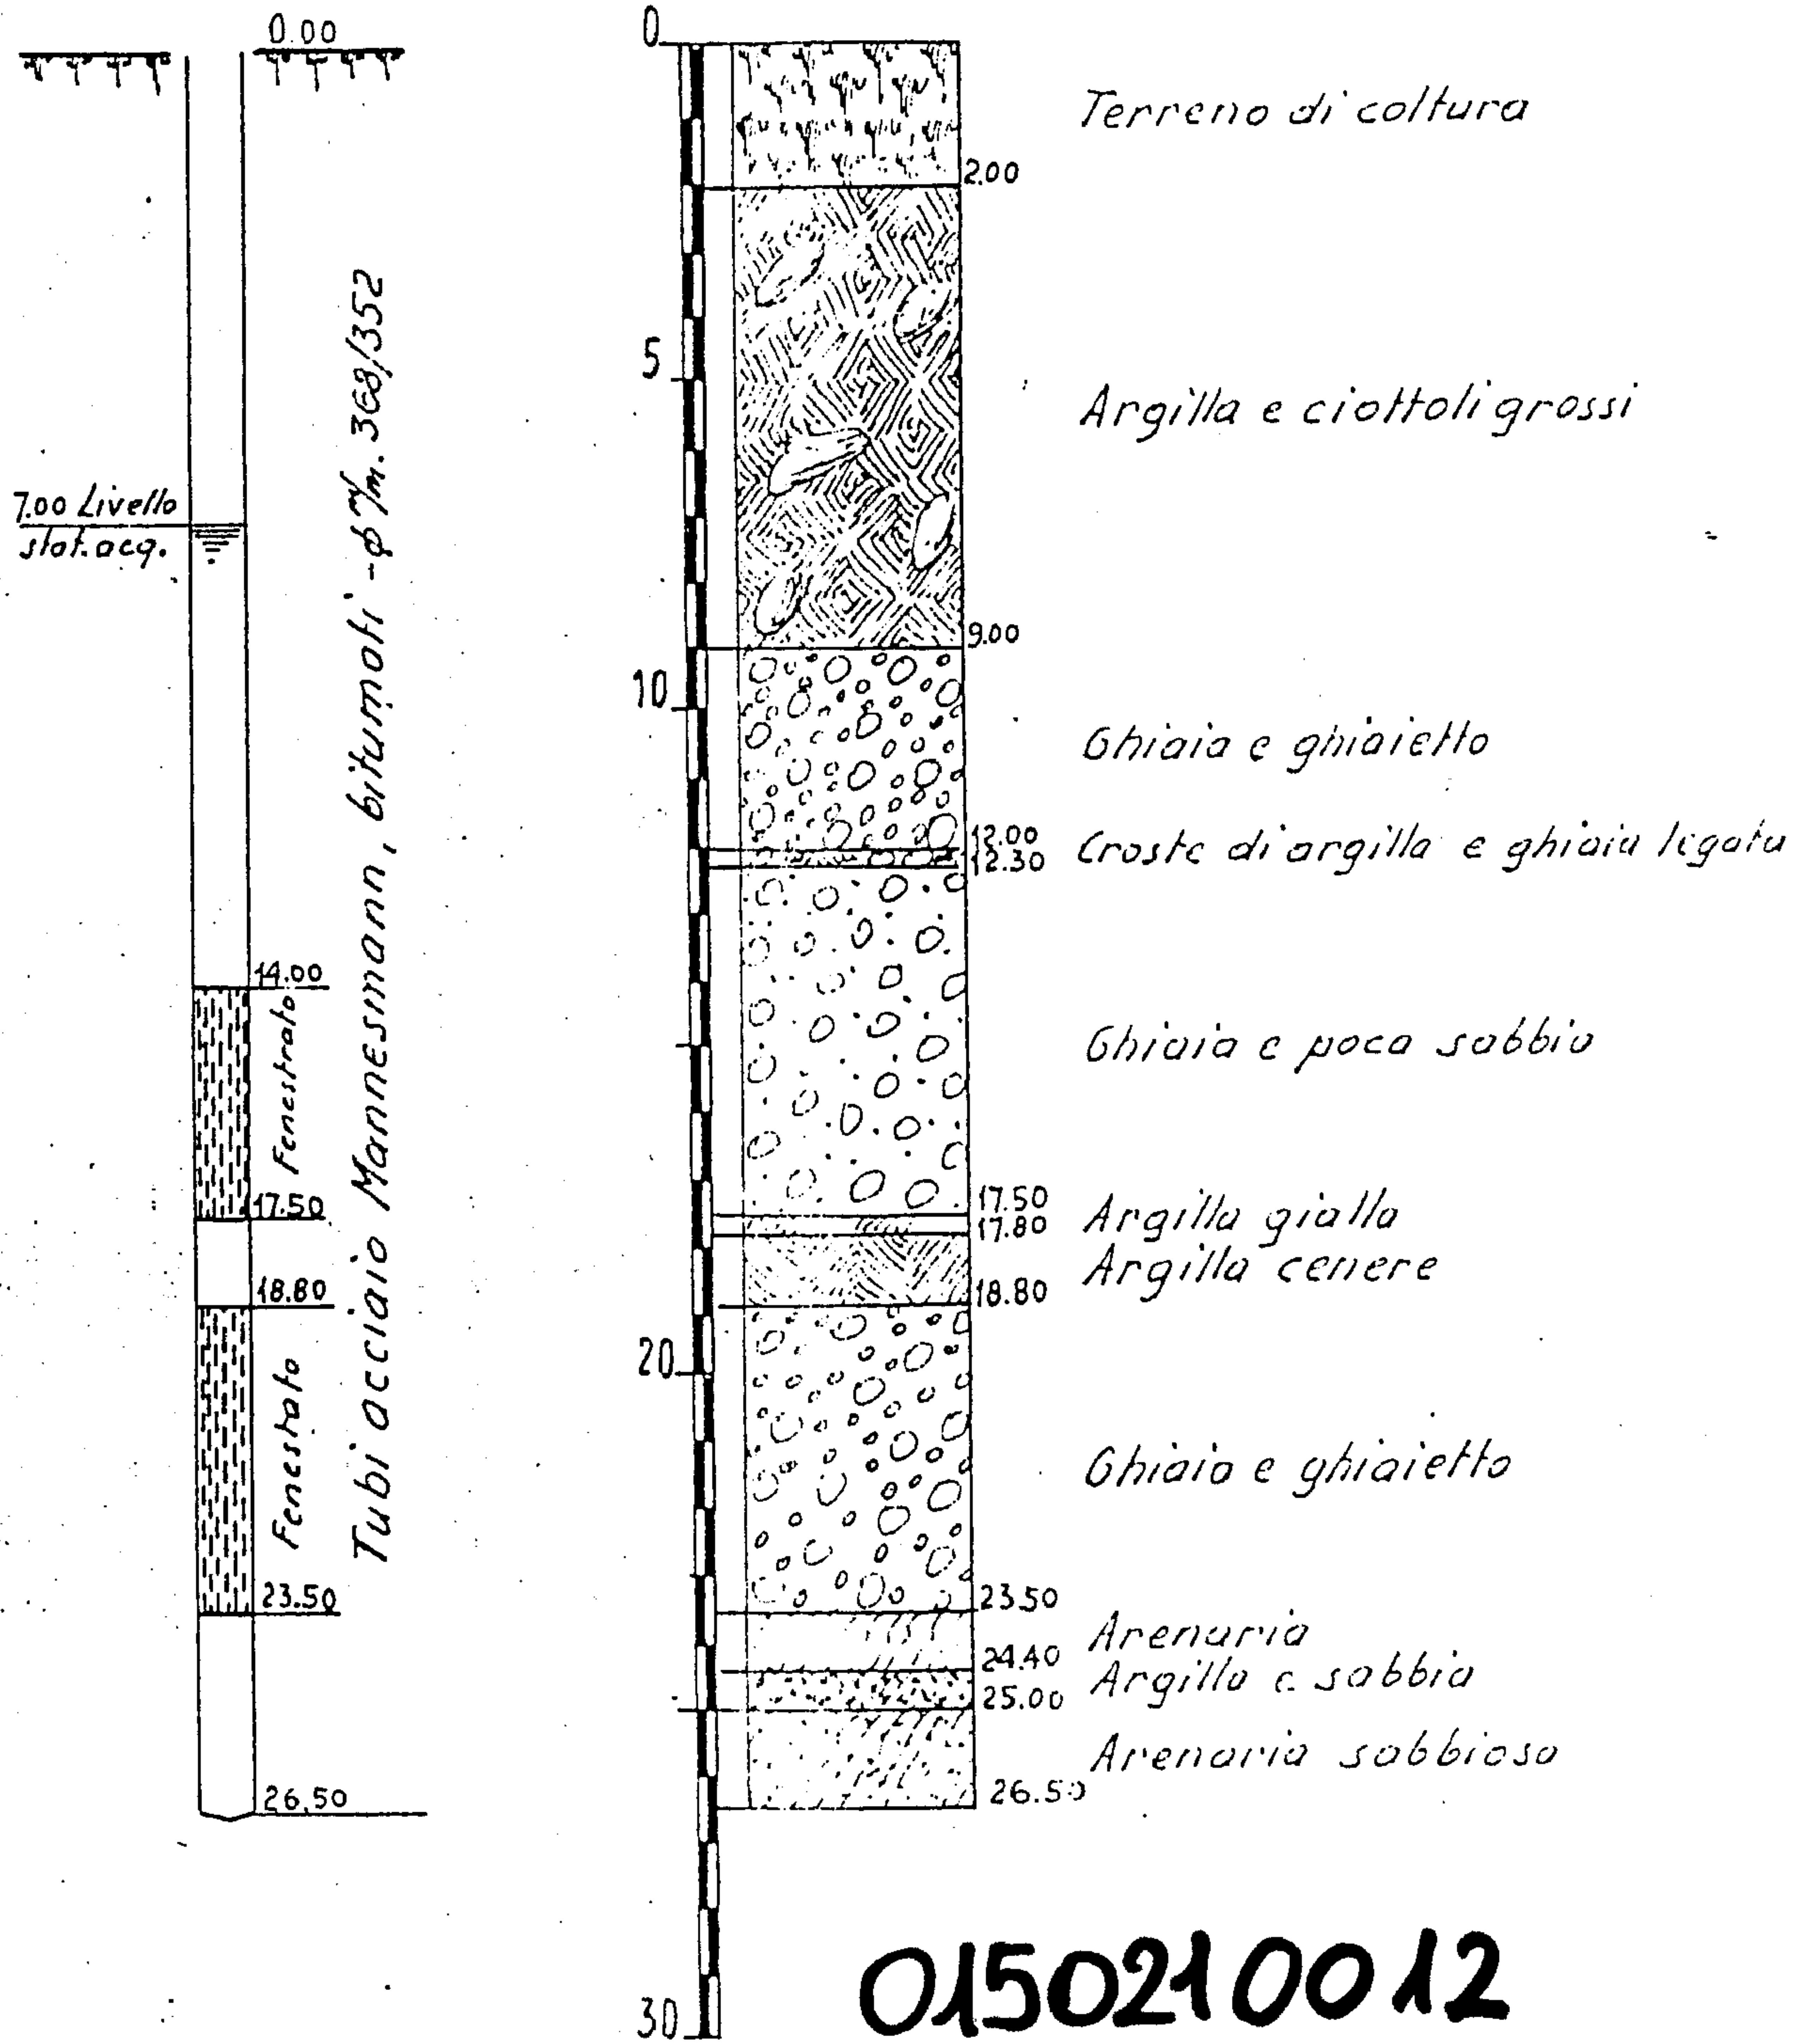 0.00
7.00 Livello
stat. acq.
14.00
Fenestrato
17.50
18.80
Fenestato
23.50
26.50
Tubi acciaio Mannesmann, bitumati - ϕ m/m. 368/352
0
5
10
20
30
2.00
9.00
12.00
12.30
17.50
17.80
18.80
23.50
24.40
25.00
26.50
Terreno di coltura
Argilla e ciottoli grossi
Ghiaia e ghiaietto
Croste di argilla e ghiaia legata
Ghiaia e poca sabbia
Argilla gialla
Argilla cenere
Ghiaia e ghiaietto
Arenaria
Argilla e sabbia
Arenaria sabbiosa
0150210012